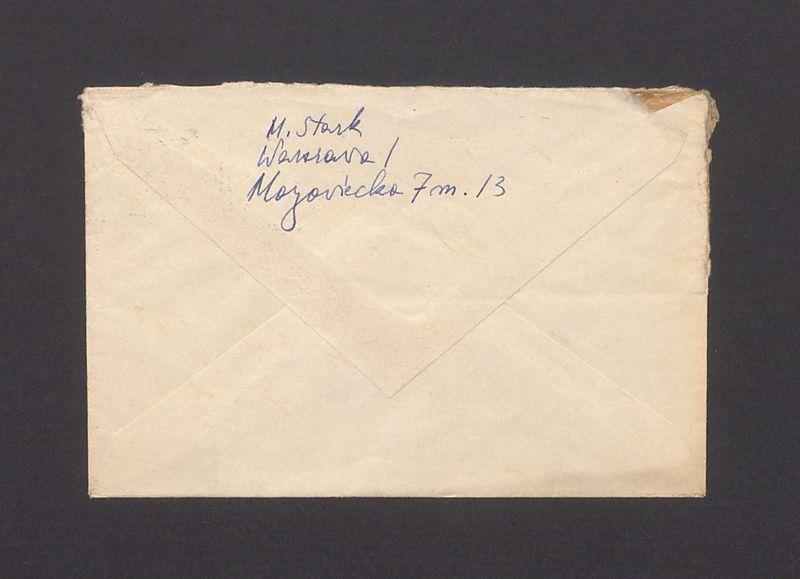 M. Stark
Warszawa 1
Mazowiecka 7 m. 13